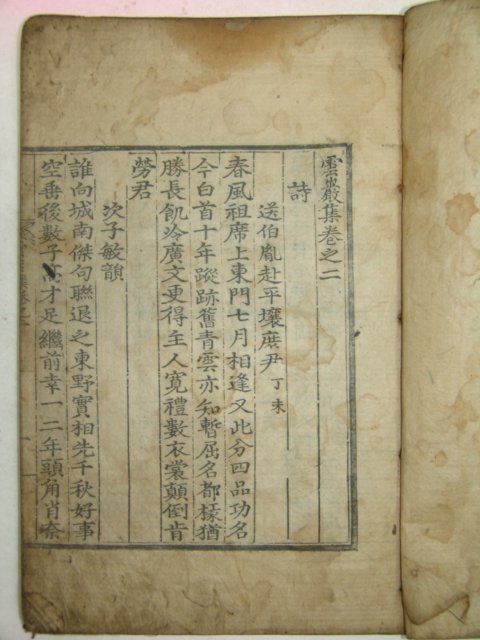 雲巖集卷之二
詩
送伯胤赴平壤庶尹 丁未
春風祖席上東門七月相逢又此分四品功名
今白首十年蹤跡舊青雲亦知暫屈名都樣猶
勝長飢冷廣文更得主人寬禮數衣裳顛倒肯
勞君
次子敏韻
誰向城南傑句聯退之東野實相先千秋好事
空垂後數子高才足繼前幸一二年頭角肖奈